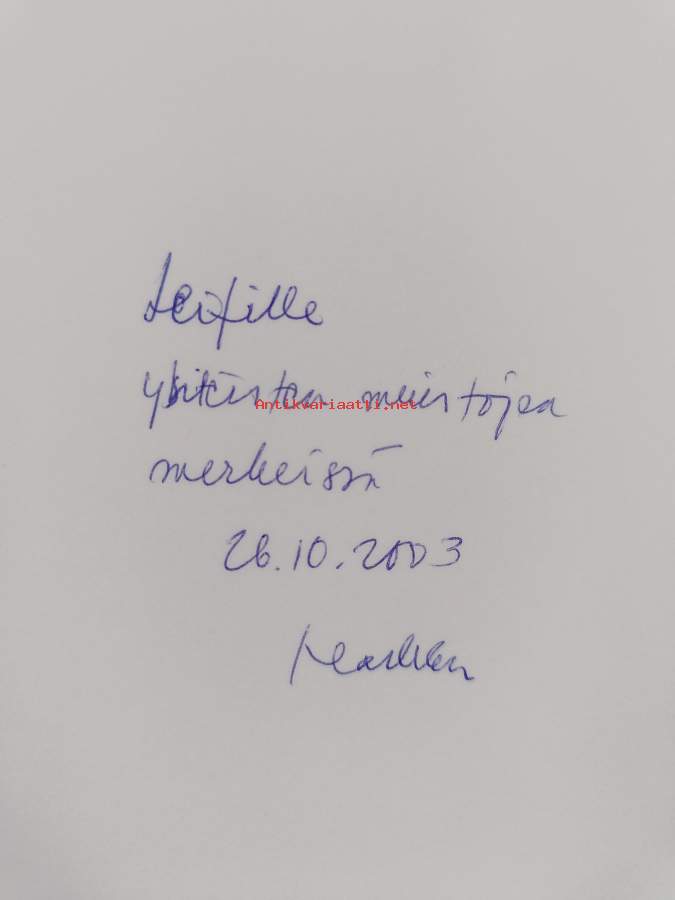 Leifille
yhteisten muistojen
Antikvariaatti.net
merkeissä
26.10.2003
Markku